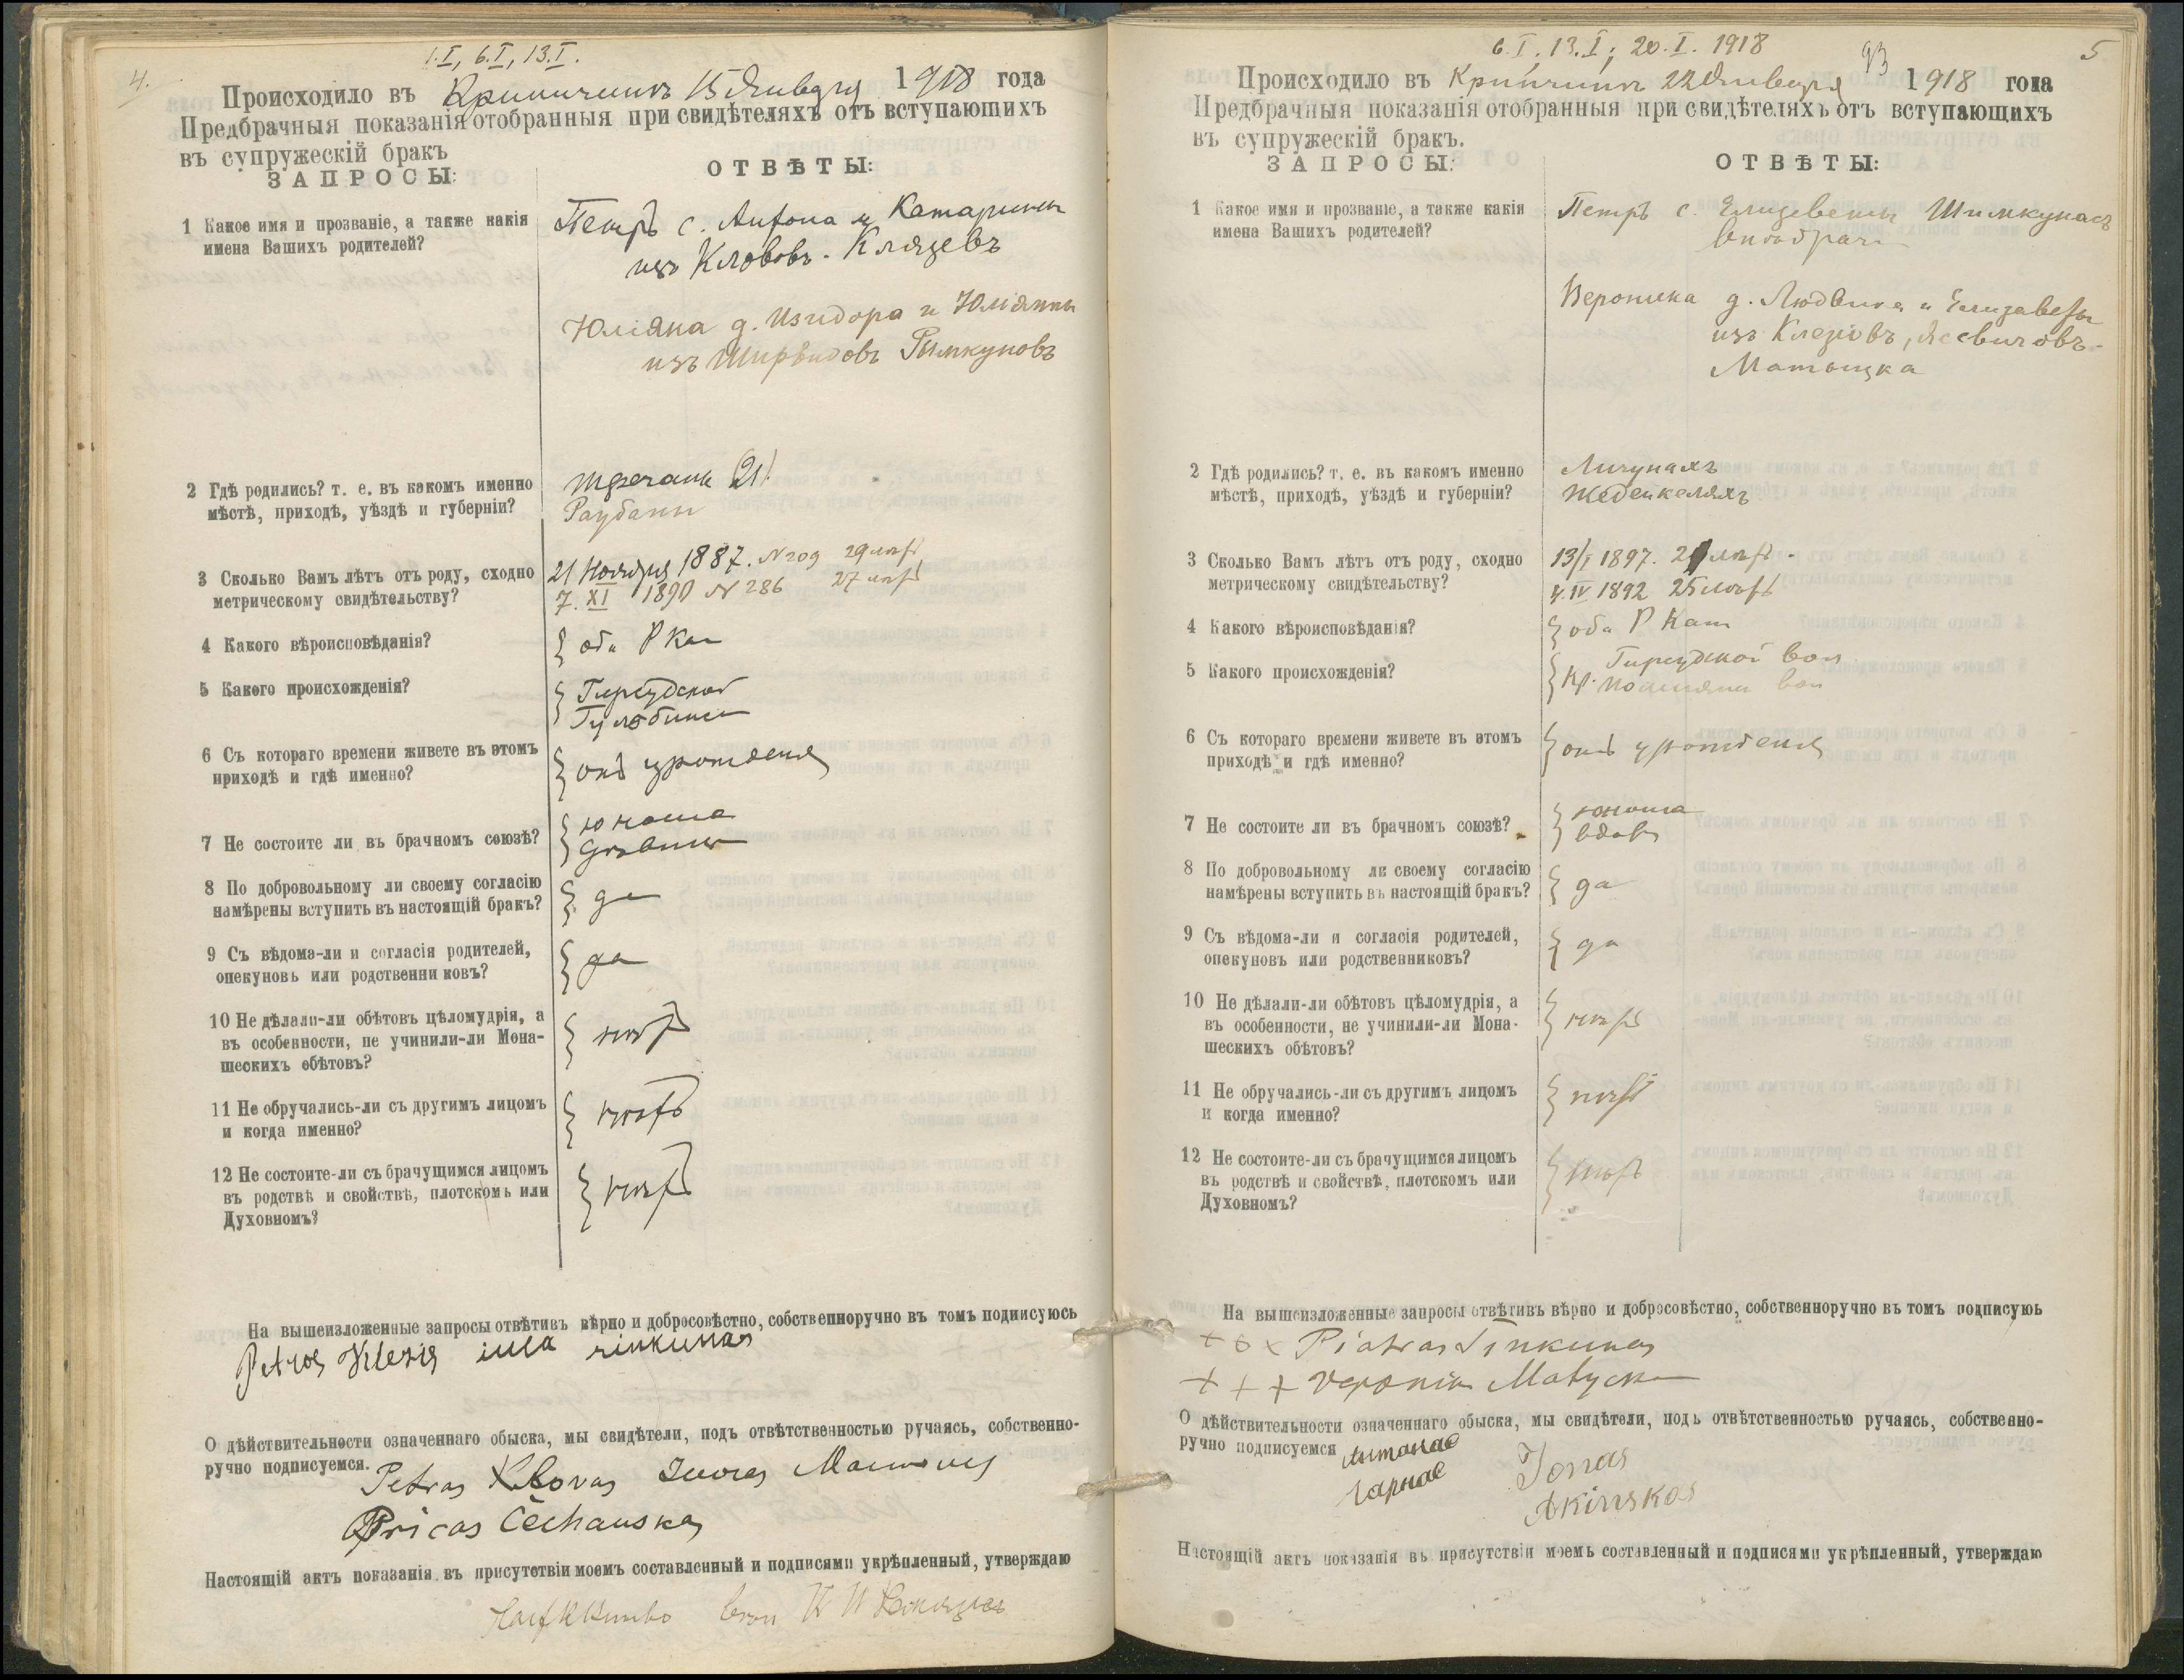 4.
1.I, 6.I, 13.I.
Происходило въ 15 Января 1918 года
Предбрачныя показанія отобранныя при свидѣтеляхъ отъ вступающихъ
въ супружескій бракъ
ЗАПРОСЫ: ОТВѢТЫ:
1 Какое имя и прозваніе, а также какія
имена Вашихъ родителей?
Петръ с. Антона и Катарины
изъ Клововъ - Клязевъ
Юліяна д. Изидора и Юліянны
изъ Ширвидовъ Рымкуновъ
2 Гдѣ родились? т. е. въ какомъ именно
мѣстѣ, приходѣ, уѣздѣ и губерніи?
Раубаны
3 Сколько Вамъ лѣтъ отъ роду, сходно
метрическому свидѣтельству?
21 Ноября 1887. N 209 29 лѣтъ
7. XI 1890 N 286 27 лѣтъ
4 Какого вѣроисповѣданія?
оба Р Кат
5 Какого происхожденія?
Гиркудской
6 Съ котораго времени живете въ этомъ
приходѣ и гдѣ именно?
онъ урожденія
7 Не состоите ли въ брачномъ союзѣ?
юноша
8 По добровольному ли своему согласію
намѣрены вступить въ настоящій бракъ?
да
9 Съ вѣдома-ли и согласія родителей,
опекуновъ или родственни ковъ?
да
10 Не дѣлали-ли обѣтовъ цѣломудрія, а
въ особенности, не учинили-ли Мона-
шескихъ обѣтовъ?
нѣтъ
11 Не обручались-ли съ другимъ лицомъ
и когда именно?
нѣтъ
12 Не состоите-ли съ брачущимся лицомъ
въ родствѣ и свойствѣ, плотскомъ или
Духовномъ?
нѣтъ
На вышеизложенные запросы отвѣтивъ вѣрно и добросовѣстно, собственноручно въ томъ подписуюсь
rinkunas
О дѣйствительности означеннаго обыска, мы свидѣтели, подъ отвѣтственностью ручаясь, собственно-
ручно подписуемся.
Petras Klovas
Čechauskas
Настоящій актъ показанія въ присутствіи моемъ составленный и подписями укрѣпленный, утверждаю
5
93
6.I, 13.I; 20.I. 1918
Происходило въ 22 Января 1918 года
Предбрачныя показанія отобранныя при свидѣтеляхъ отъ вступающихъ
въ супружескій бракъ.
ЗАПРОСЫ: ОТВѢТЫ:
1 Какое имя и прозваніе, а также какія
имена Вашихъ родителей?
Петръ с. Елизаветы
Вероника д. Людвика и Елизаветы
изъ
Матыцка
2 Гдѣ родились? т. е. въ какомъ именно
мѣстѣ, приходѣ, уѣздѣ и губерніи?
Личунахъ
Жедейкеляхъ
3 Сколько Вамъ лѣтъ отъ роду, сходно
метрическому свидѣтельству?
13/I 1897. 21 лѣтъ.
4.IV 1892 25 лѣтъ
4 Какого вѣроисповѣданія?
оба Р Кат
5 Какого происхожденія?
Гиркудской вол
кр. вол
6 Съ котораго времени живете въ этомъ
приходѣ и гдѣ именно?
онъ урожденія
7 Не состоите ли въ брачномъ союзѣ?
юноша
вдова
8 По добровольному ли своему согласію
намѣрены вступить въ настоящій бракъ?
да
9 Съ вѣдома-ли и согласія родителей,
опекуновъ или родственниковъ?
да
10 Не дѣлали-ли обѣтовъ цѣломудрія, а
въ особенности, не учинили-ли Мона-
шескихъ обѣтовъ?
нѣтъ
11 Не обручались-ли съ другимъ лицомъ
и когда именно?
нѣтъ
12 Не состоите-ли съ брачущимся лицомъ
въ родствѣ и свойствѣ, плотскомъ или
Духовномъ?
нѣтъ
На вышеизложенные запросы отвѣтивъ вѣрно и добросовѣстно, собственноручно въ томъ подписуюь
+ + × Piatras
+ + + Matycka
О дѣйствительности означеннаго обыска, мы свидѣтели, подъ отвѣтственностью ручаясь, собственно-
ручно подписуемся
Антанас
Jonas
Akinskas
Настоящій актъ показанія въ присутствіи моемъ составленный и подписями укрѣпленный, утверждаю